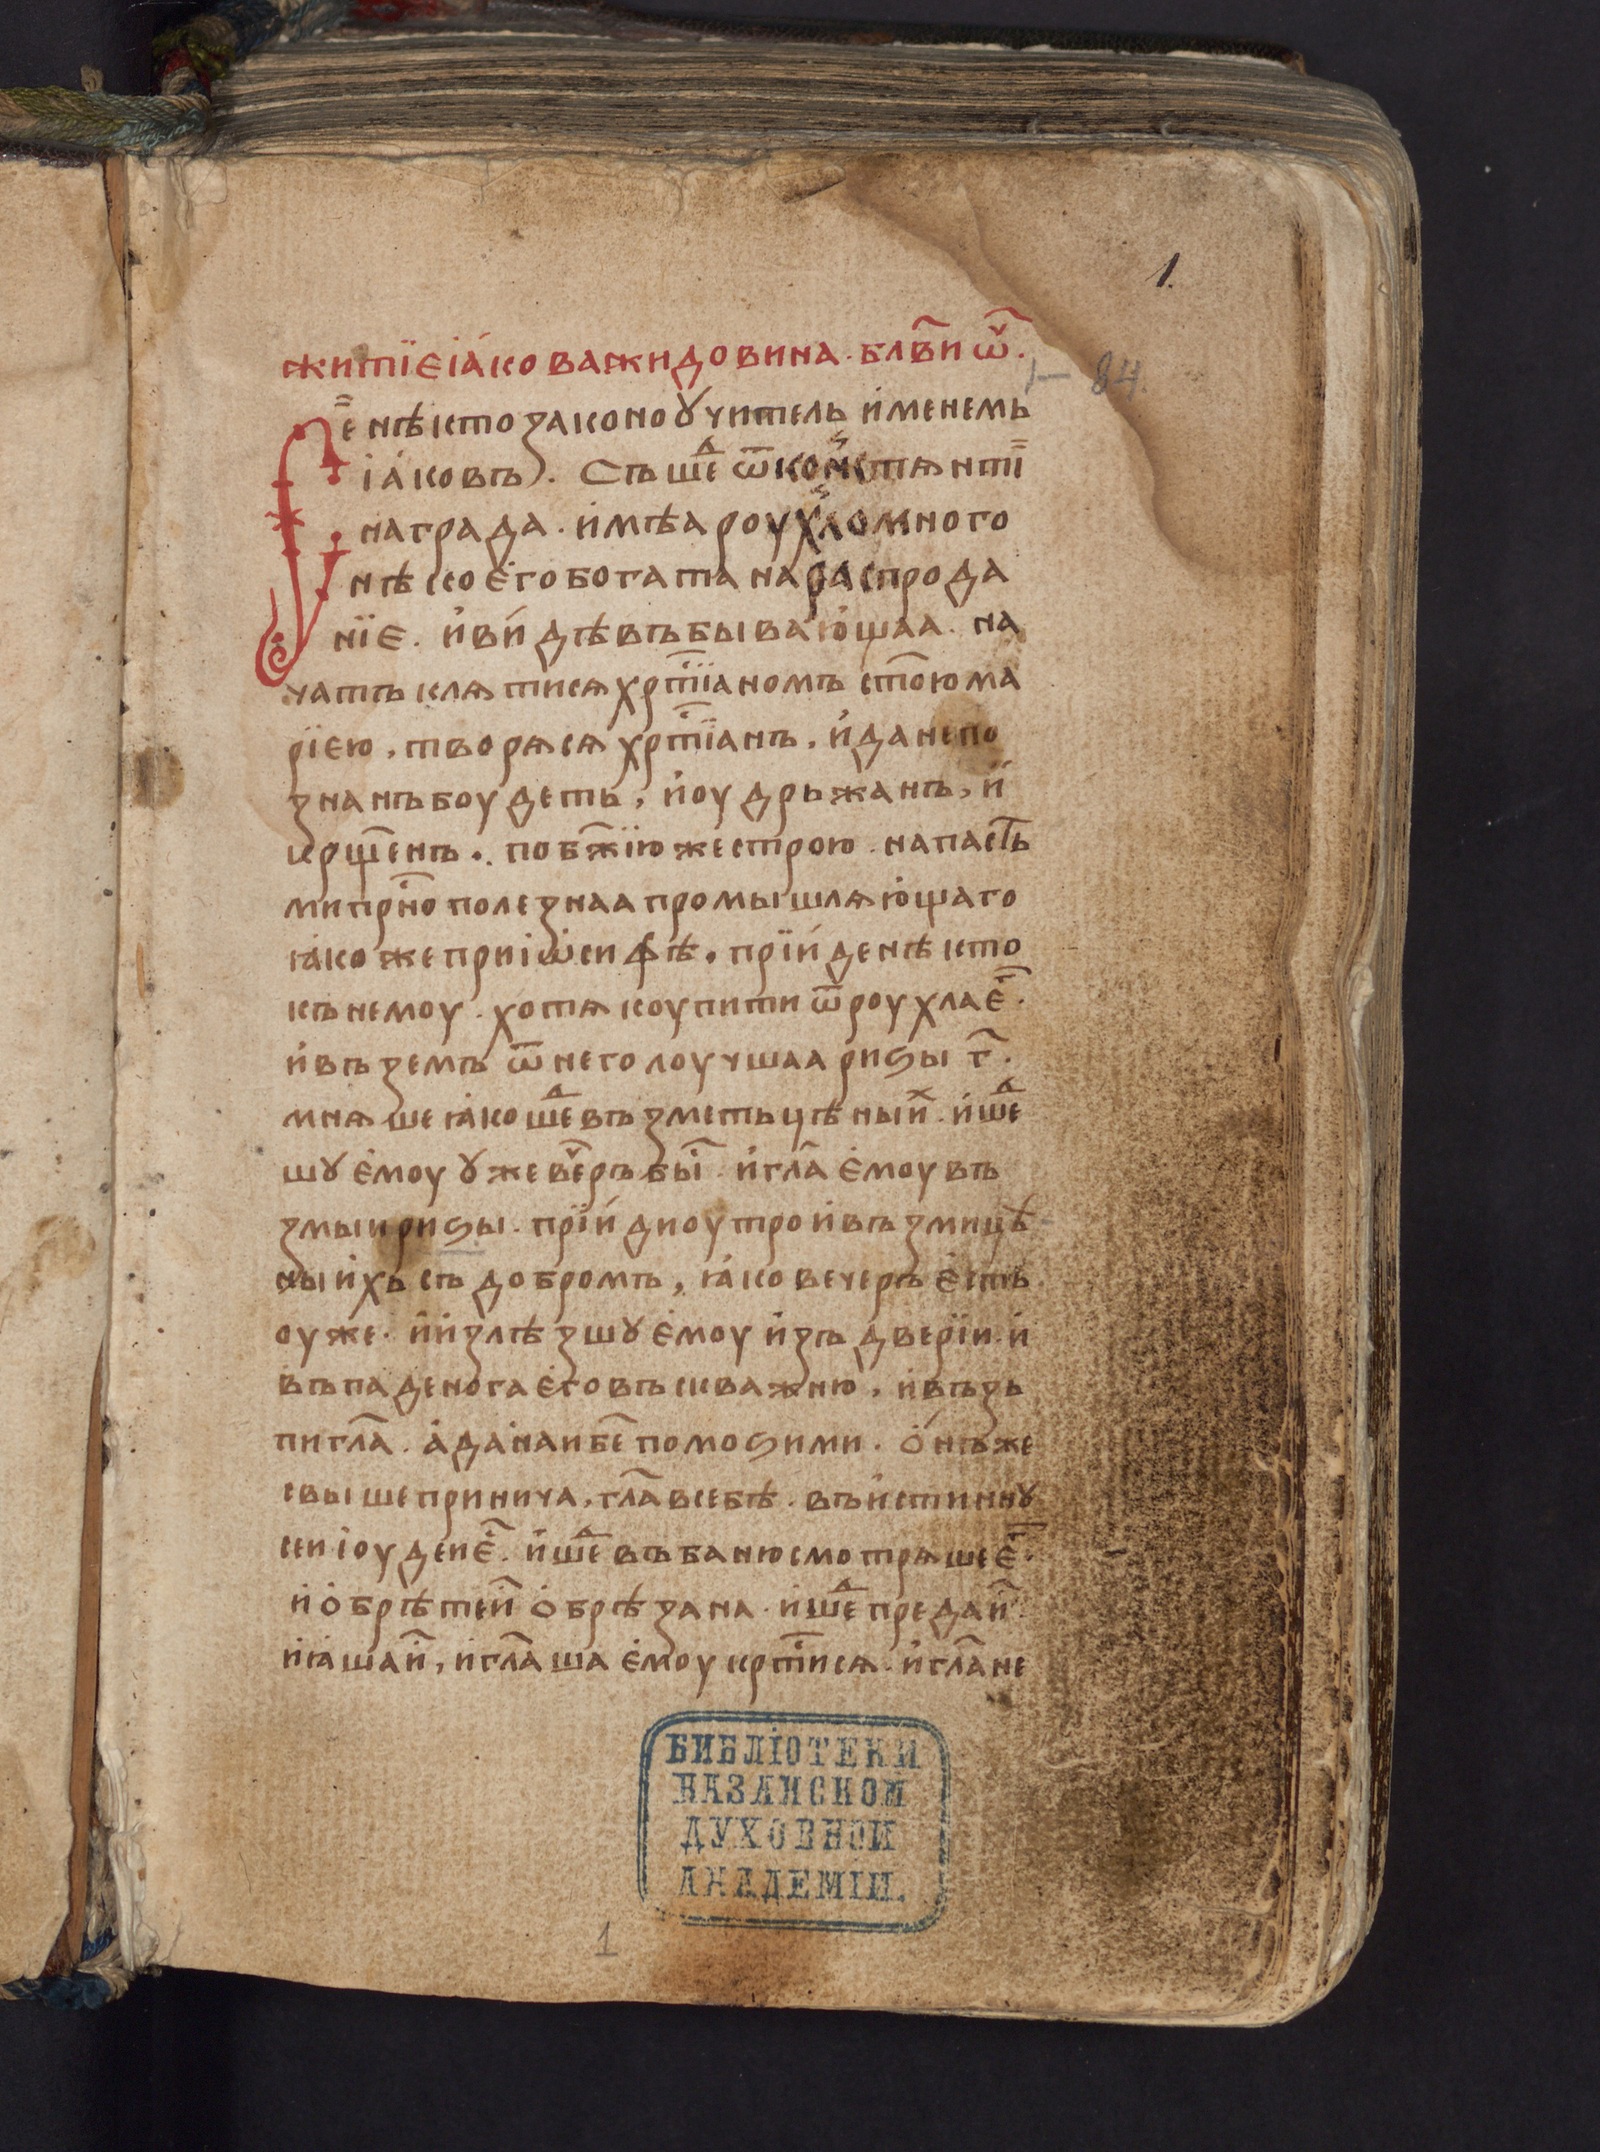 1.
житїе іа́кова жидовина. бл҃ви ѡ҃ч.
1—84
Бѣ нѣкто законоꙋчитель и́менемь
іа́ковъ). Съшеⷣ ѿ ко́нстянті
награда. и́мѣа роухло много
нѣкоего богата на распрода
нїе. и́ ви́дѣвъ бываю́щаа. на
чатъ клятися хрⷭ҇тїаномъ ст҃ою ма
рїею, творяся хрⷭ҇тїанъ, и́ да не по
знанъ боудеть, и́ оудрьжанъ, и́
крщ҃енъ. по бж҃їю же строю. напасть
ми прⷭ҇но полезнаа промышляю́щаго
ꙗ́коже при іѡ́сифѣ. прїи́де нѣкто
къ немоу. хотя коупити ѿ роухла е҆г҃.
и́ въземъ ѿ него лоучшаа ризы г҃.
мняше ꙗ́ко шеⷣ възметь цѣныи́ⷯ. и́ шеⷣ
шꙋ е́моу ꙋже веⷱ҇ръ быⷭ҇. и́ гл҃а е́моу въ
змыи ризы. прїи́ди оутро и́ възми цѣ
ныи́хь съ добромъ, ꙗ́ко вечеръ е́сть
оуже. и́ и́злѣзшꙋ е́моу и́зъ дверїи. и́
въпаде нога е́го въ скважню, и́ възъ
пи гл҃а. а́дана́и бе҃ помози ми. о́нъ же
свыше принича, гл҃а в себѣ. въи́стиннꙋ
сеи іоудеи еⷭ҇. и́ шеⷣ въ баню смотряше е҆г҃.
и́ о́брѣте и́ о́брѣзана. и́ шеⷣ предаⷭ҇ и́.
и́ ꙗ́ша и́, и́ гл҃аша е́моу крⷭ҇тися. и́ гл҃а не
БИБЛІОТЕКИ
КАЗАНСКОЙ
ДУХОВНОЙ
АКАДЕМІИ.
1